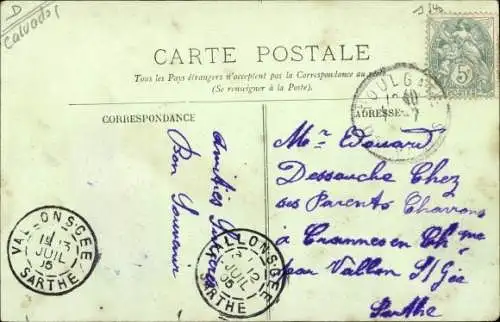 D
Calvados
CARTE POSTALE
Tous les Pays étrangers n'acceptent pas la Correspondance au
(Se renseigner à la Poste).
CORRESPONDANCE
ADRESSE
amitiés
Bon Souvenir
Mr Edouard
Dessouche Chez
ses Parents Charrons
à Crannes en Chgne
par Vallon S/ Gée
Sarthe
5c
POSTES
VALLON S GEE
13
JUIL
05
SARTHE
VALLON S GEE
12
JUIL
05
SARTHE